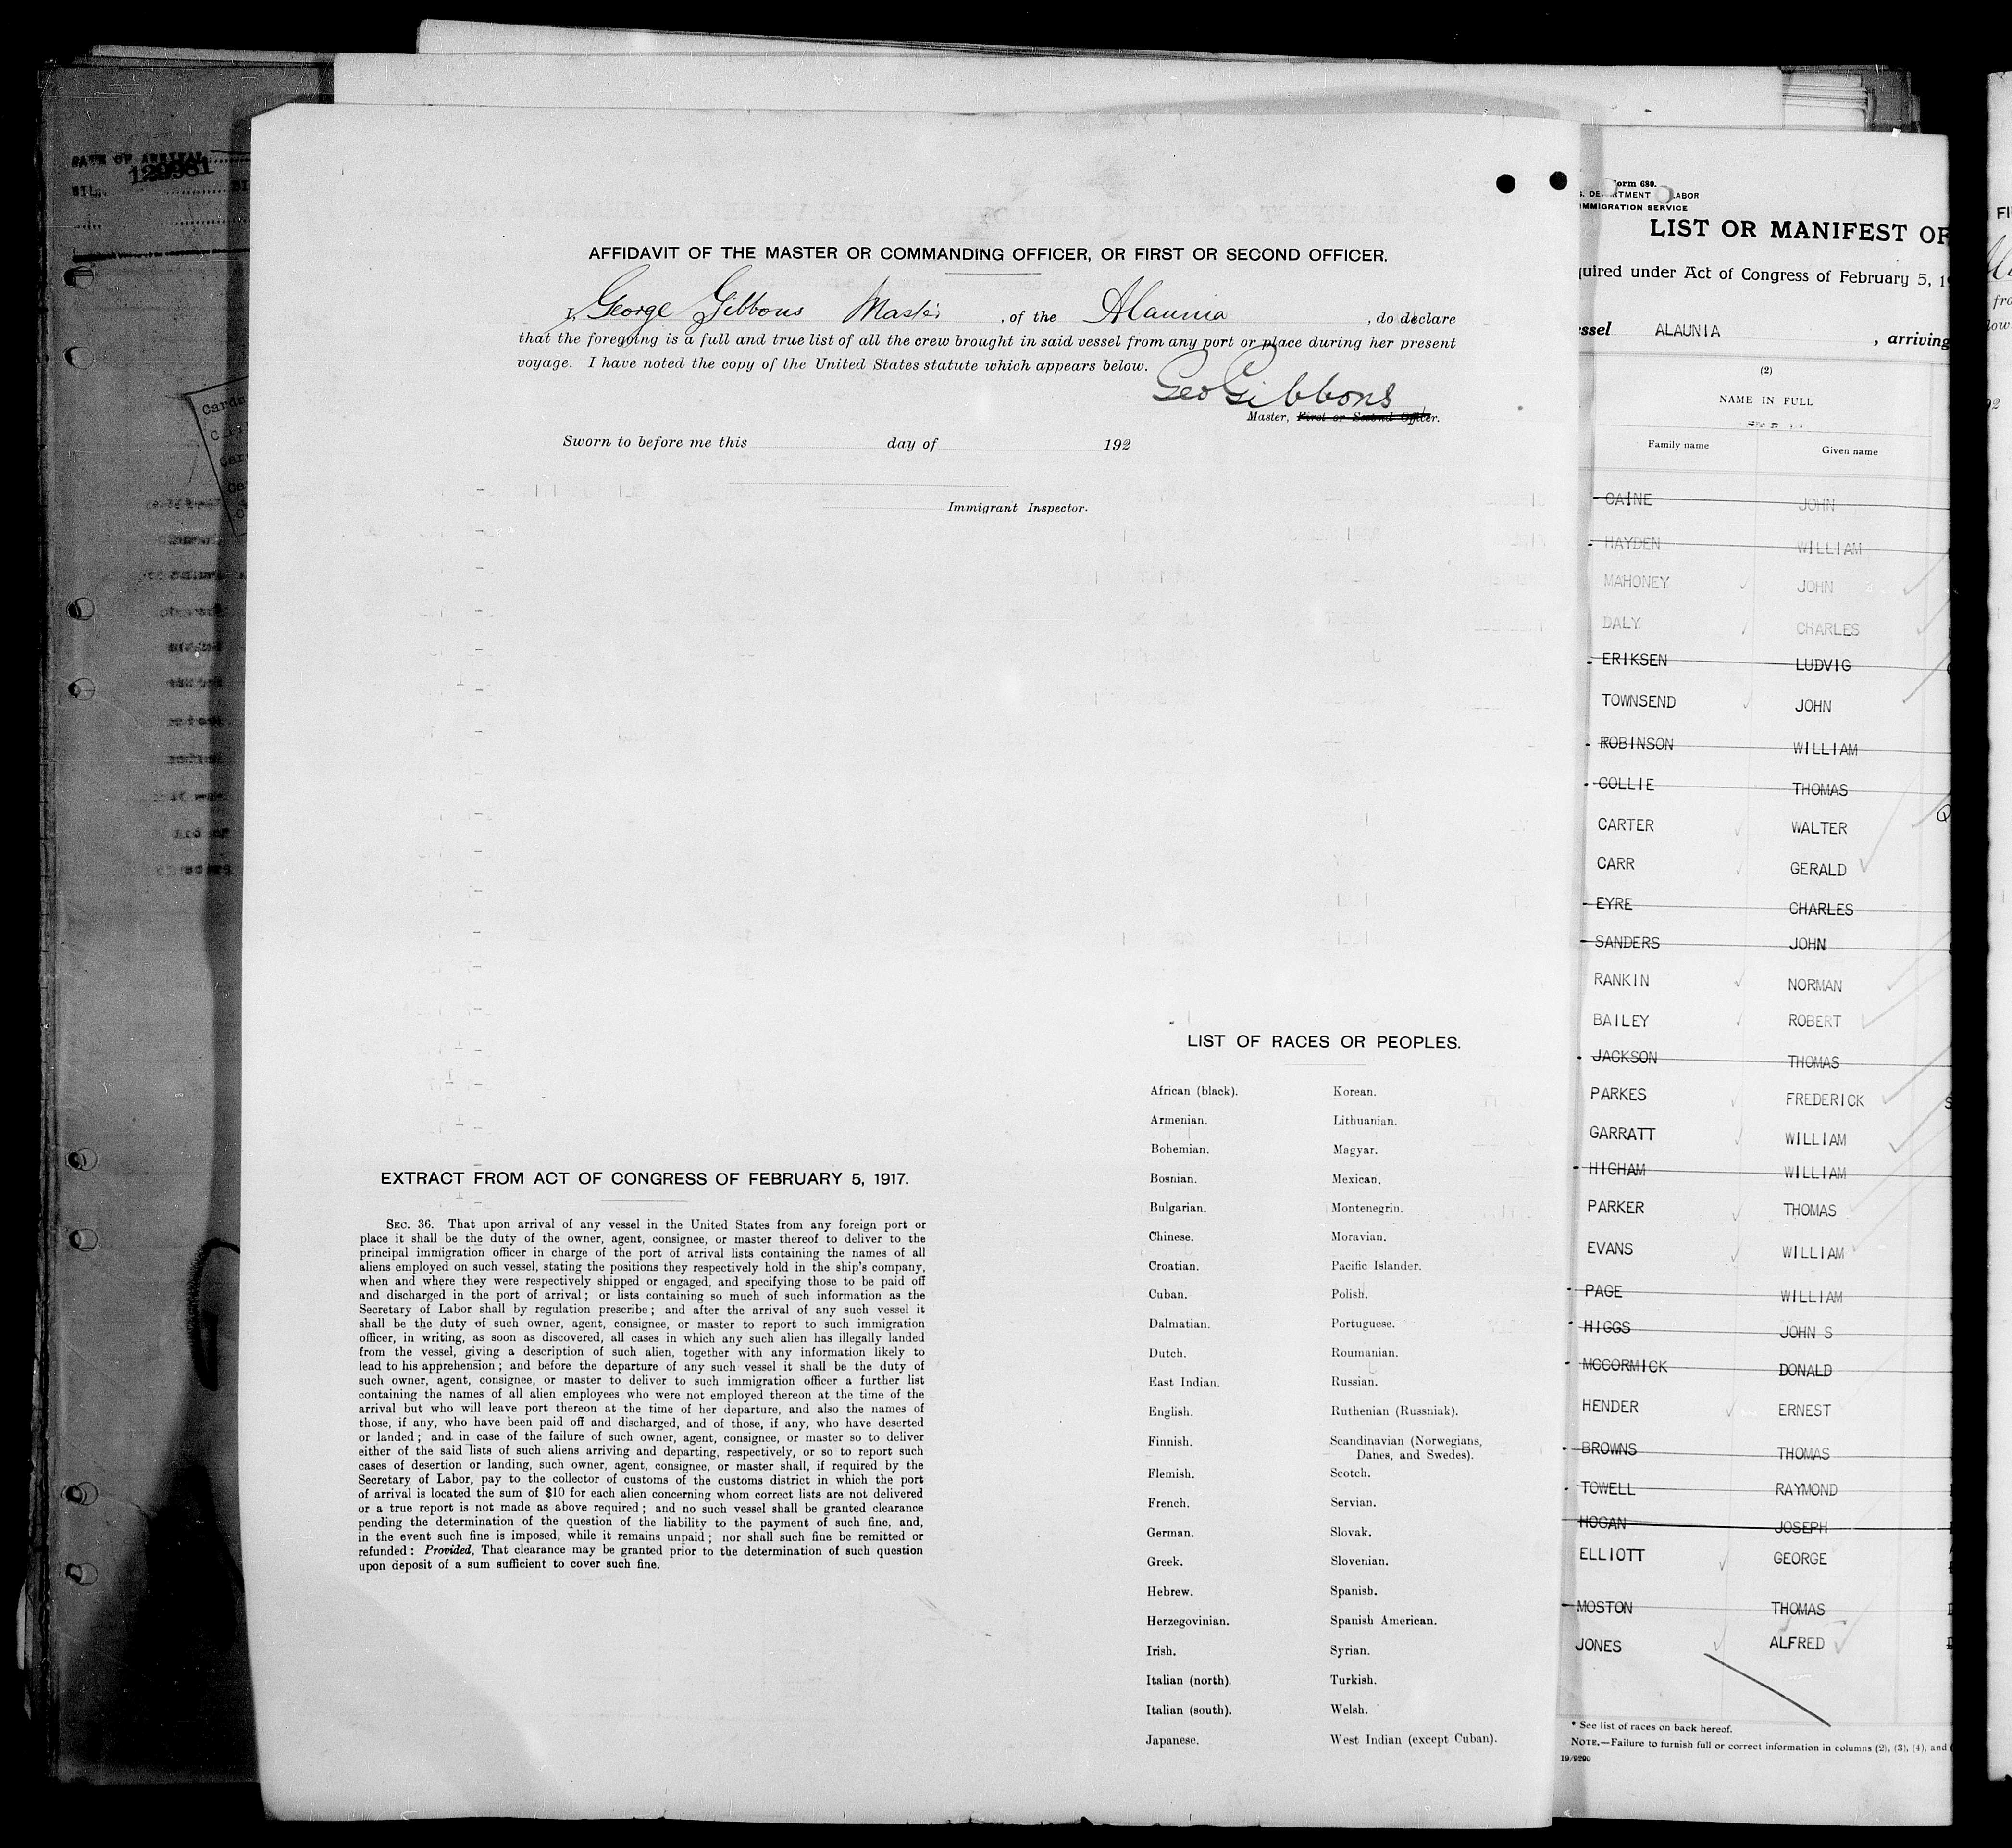 DATE OF ARRIVAL
129981
AFFIDAVIT OF THE MASTER OR COMMANDING OFFICER, OR FIRST OR SECOND OFFICER.
I, George Gibbons Master , of the Alaunia , do declare
that the foregoing is a full and true list of all the crew brought in said vessel from any port or place during her present
voyage. I have noted the copy of the United States statute which appears below.
Geo Gibbons
Master, First or Second Officer.
Sworn to before me this day of 192
Immigrant Inspector.
LIST OF RACES OR PEOPLES.
African (black). Korean.
Armenian. Lithuanian.
Bohemian. Magyar.
Bosnian. Mexican.
Bulgarian. Montenegrin.
Chinese. Moravian.
Croatian. Pacific Islander.
Cuban. Polish.
Dalmatian. Portuguese.
Dutch. Roumanian.
East Indian. Russian.
English. Ruthenian (Russniak).
Finnish. Scandinavian (Norwegians,
Danes, and Swedes).
Flemish. Scotch.
French. Servian.
German. Slovak.
Greek. Slovenian.
Hebrew. Spanish.
Herzegovinian. Spanish American.
Irish. Syrian.
Italian (north). Turkish.
Italian (south). Welsh.
Japanese. West Indian (except Cuban).
EXTRACT FROM ACT OF CONGRESS OF FEBRUARY 5, 1917.
SEC. 36. That upon arrival of any vessel in the United States from any foreign port or
place it shall be the duty of the owner, agent, consignee, or master thereof to deliver to the
principal immigration officer in charge of the port of arrival lists containing the names of all
aliens employed on such vessel, stating the positions they respectively hold in the ship's company,
when and where they were respectively shipped or engaged, and specifying those to be paid off
and discharged in the port of arrival; or lists containing so much of such information as the
Secretary of Labor shall by regulation prescribe; and after the arrival of any such vessel it
shall be the duty of such owner, agent, consignee, or master to report to such immigration
officer, in writing, as soon as discovered, all cases in which any such alien has illegally landed
from the vessel, giving a description of such alien, together with any information likely to
lead to his apprehension; and before the departure of any such vessel it shall be the duty of
such owner, agent, consignee, or master to deliver to such immigration officer a further list
containing the names of all alien employees who were not employed thereon at the time of the
arrival but who will leave port thereon at the time of her departure, and also the names of
those, if any, who have been paid off and discharged, and of those, if any, who have deserted
or landed; and in case of the failure of such owner, agent, consignee, or master so to deliver
either of the said lists of such aliens arriving and departing, respectively, or so to report such
cases of desertion or landing, such owner, agent, consignee, or master shall, if required by the
Secretary of Labor, pay to the collector of customs of the customs district in which the port
of arrival is located the sum of $10 for each alien concerning whom correct lists are not delivered
or a true report is not made as above required; and no such vessel shall be granted clearance
pending the determination of the question of the liability to the payment of such fine, and,
in the event such fine is imposed, while it remains unpaid; nor shall such fine be remitted or
refunded: Provided, That clearance may be granted prior to the determination of such question
upon deposit of a sum sufficient to cover such fine.
Form 680.
LABOR
IMMIGRATION SERVICE
LIST OR MANIFEST OF
quired under Act of Congress of February 5, 19
ssel ALAUNIA , arriving
(2)
NAME IN FULL
Family name Given name
CAINE JOHN
HAYDEN WILLIAM
MAHONEY JOHN
DALY CHARLES
ERIKSEN LUDVIG
TOWNSEND JOHN
ROBINSON WILLIAM
COLLIE THOMAS
CARTER WALTER
CARR GERALD
EYRE CHARLES
SANDERS JOHN
RANKIN NORMAN
BAILEY ROBERT
JACKSON THOMAS
PARKES FREDERICK
GARRATT WILLIAM
HIGHAM WILLIAM
PARKER THOMAS
EVANS WILLIAM
PAGE WILLIAM
HIGGS JOHN S
MCCORMICK DONALD
HENDER ERNEST
BROWNS THOMAS
TOWELL RAYMOND
HOGAN JOSEPH
ELLIOTT GEORGE
MOSTON THOMAS
JONES ALFRED
* See list of races on back hereof.
NOTE.—Failure to furnish full or correct information in columns (2), (3), (4), and
19/9290